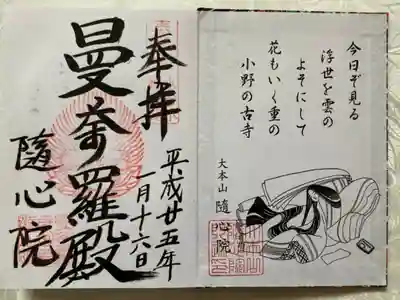 今日ぞ見る
浮世を雲の
よそにして
花もいく重の
小野の古寺
大本山 隨心院
奉拝
平成廿五年
一月十六日
曼荼羅殿
隨心院